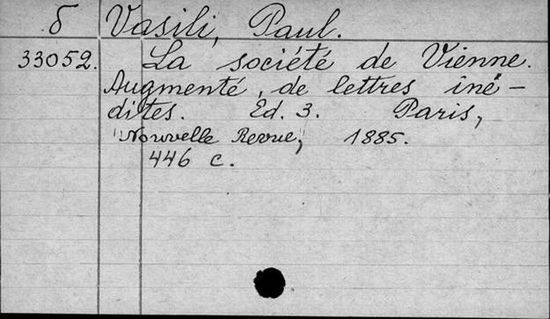 б Vasili, Paul.
33052. La société de Vienne.
Augmenté de lettres iné-
dites. Ed. 3. Paris,
"Nouvelle Revue," 1885.
446 c.